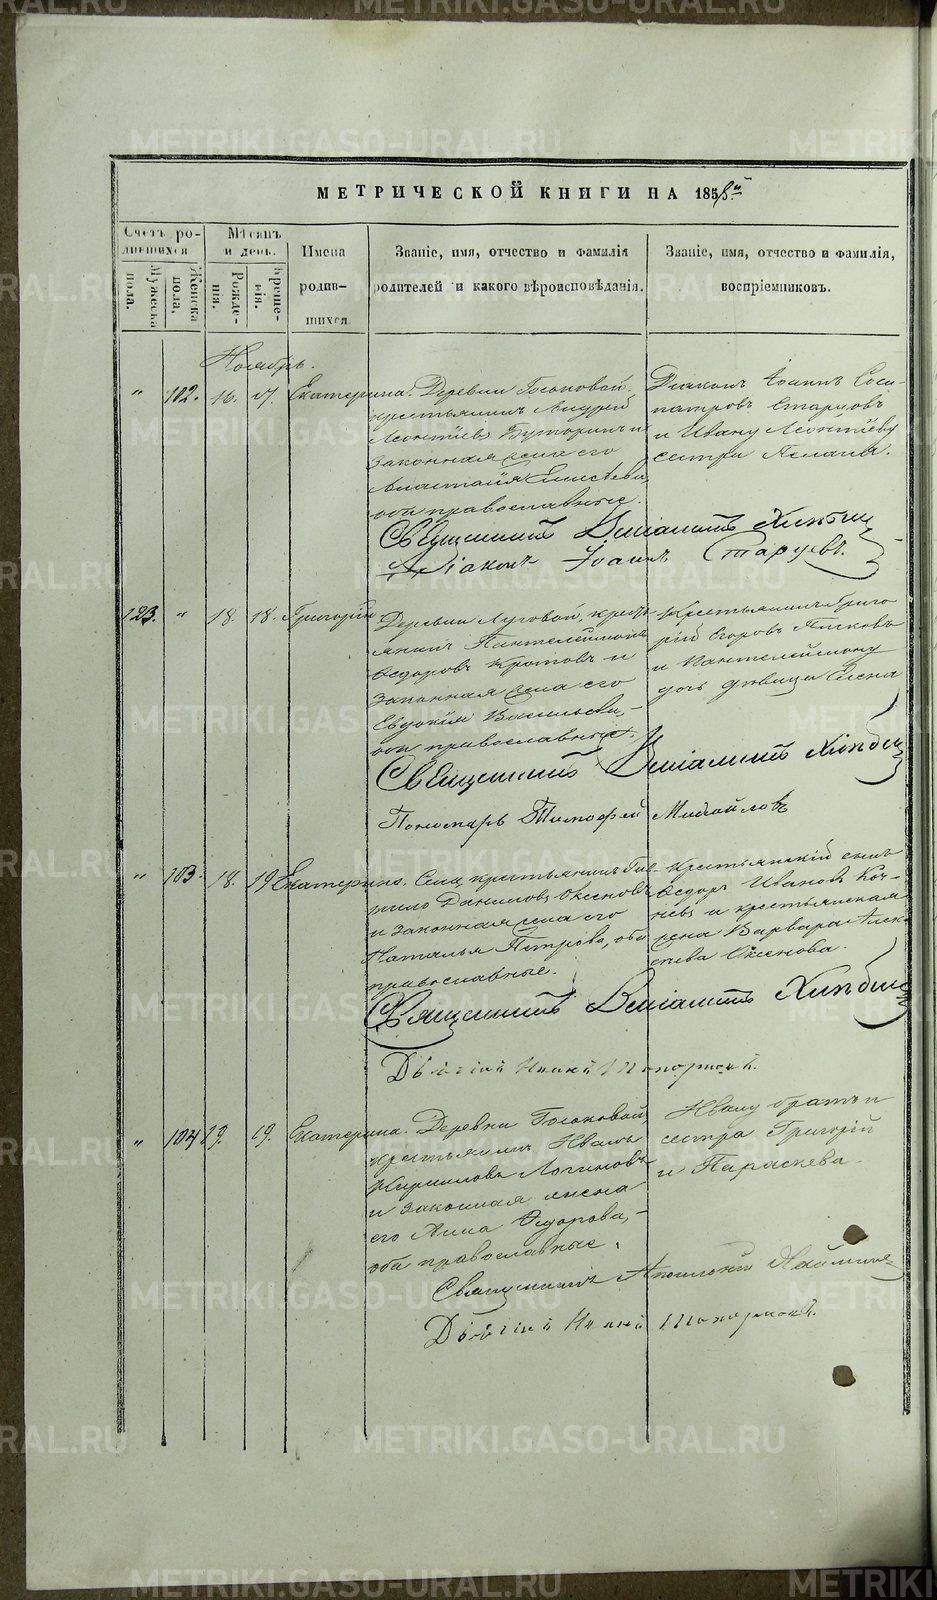 METRIKI.GASO-URAL.RU
МЕТРИЧЕСКОЙ КНИГИ НА 185
Счетъ ро-
дившихся
Мужеска
пола.
Женска
пола,
Мѣсяцъ
и день.
Рожде-
нія.
Креще-
нія.
Имена
родив-
шихся
Званіе, имя, отчество и фамилія
родителей и какого вѣроисповѣданія.
Званіе, имя, отчество и фамилія,
воспріемниковъ.
Ноябрь.
" 102. 16. 17. Екатерина. Деревни
крестьянинъ Андрей
Леонтіевъ и
законная жена его
Анастасія Елисѣева,
оба православные.
Діаконъ Іоаннъ Соси-
патровъ Старцовъ
и Ивану Леонтіеву
сестра Пелагія.
Священникъ Веніаминъ
Діаконъ Іоаннъ Старцевъ.
123. " 18. 18. Григорій
Деревни Луговой, кресть-
янинъ Пантелеймонъ
Ѳедоровъ Кротовъ и
законная жена его
Евдокія Васильева,
оба православные.
Крестьянинъ Григо-
рій Егоровъ
и Пантелеймону
дочь дѣвица Елена
Священникъ Веніаминъ
Пономарь Тимофей Михайловъ
" 103. 18. 19 Екатерина. Села, крестьянинъ Гав-
рило Даниловъ Оксеновъ
и законная жена его
Наталья Петрова, оба
православные.
Крестьянскій сынъ
Ѳедоръ Ивановъ Коч-
невъ и крестьянская
жена Варвара Алек-
сѣева Оксенова.
Священникъ Веніаминъ
" 104 19. 19. Екатерина. Деревни
крестьянинъ Иванъ
Кирилловъ Логиновъ
и законная жена
его Анна Ѳедорова,
оба православные.
Ивану братъ и
сестра Григорій
и Параскева.
Священникъ